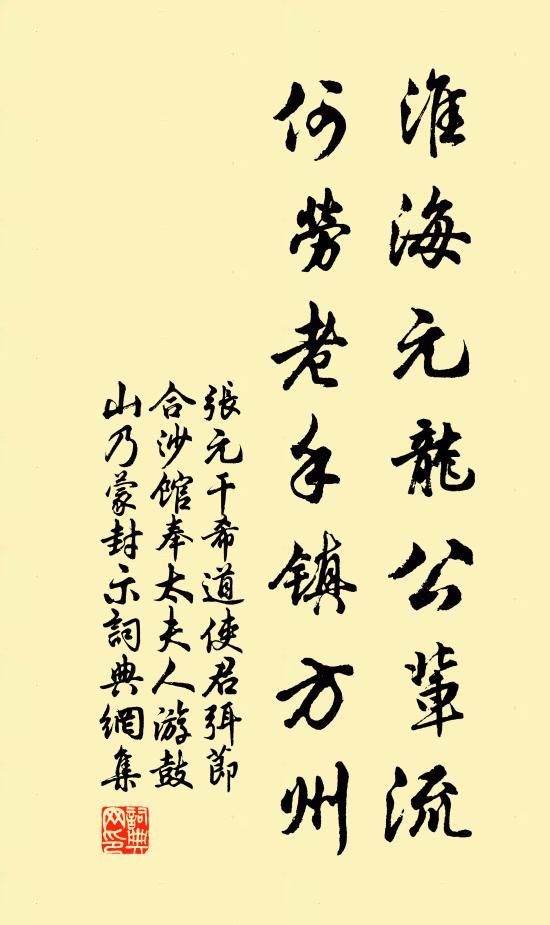 淮海元龍公輩流
何勞老手鎮方州
張元干希道使君弭節
合沙館奉太夫人游鼓
山乃蒙封示詞典網集
詞典網印